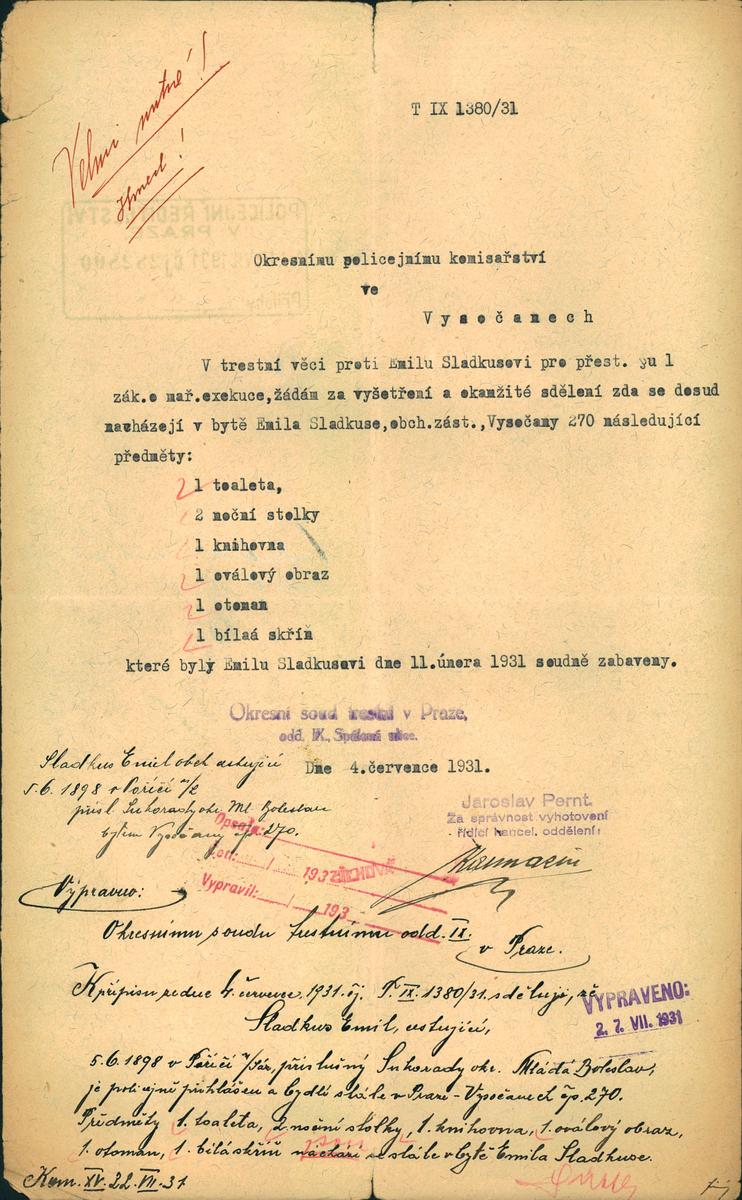 Velmi nutné!
Ihned!
T IX 1380/31
Okresnímu policejnímu komisařství
ve
Vysočanech
V trestní věci proti Emilu Sladkusovi pro přest. §u 1
zák.o mař.exekuce,žádám za vyšetření a okamžité sdělení zda se dosud
nacházejí v bytě Emila Sladkuse,obch.zást.,Vysočany 270 následující
předměty:
1 toaleta,
2 noční stolky
1 knihovna
1 oválový obraz
1 otoman
1 bílaá skříň
které byly Emilu Sladkusovi dne 11.února 1931 soudně zabaveny.
Okresní soud trestní v Praze,
odd. IX., Spálená ulice.
Dne 4.července 1931.
Sladkus Emil obch cestující
5.6. 1898 v Poříčí n/S
přísl. Suhorady okr. Ml Boleslav
bytem Vysočany čp 270.
Jaroslav Pernt.
Za správnost vyhotovení
řídící kancel. oddělení:
Opsala:
193
Vypravil: / 193
Výpraveno:
Okresnímu soudu trestnímu odd. IX.
v Praze.
K přípisu ze dne 4. července 1931. čj. T. IX. 1380/31. sděluji, že
Sladkus Emil, cestující,
VYPRAVENO:
2. 7. VII. 1931
5.6. 1898 v Poříčí n/Sáz, příslušný Suhorady okr. Mladá Boleslav,
je policejně přihlášen a bydlí stále v Praze-Vysočanech čp. 270.
Předměty 1. toaleta, 2 noční stolky, 1. knihovna, 1. oválový obraz,
1. otoman, 1. bílá skříň se stále v bytě Emila Sladkuse.
Kom. XV. 22. VII. 31